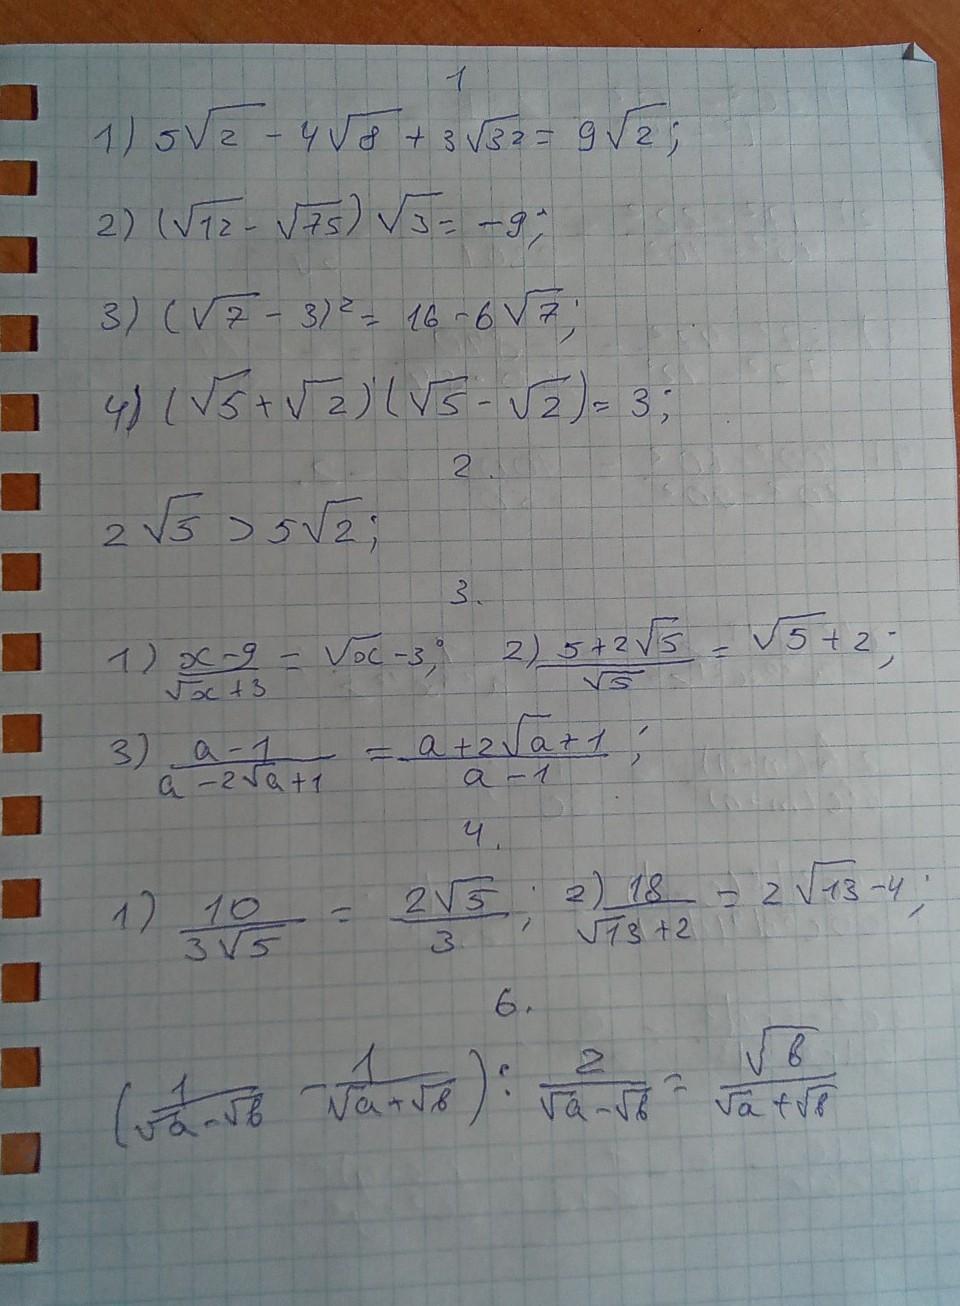 1
1) 5√2 - 4√8 + 3√32 = 9√2;
2) (√12 - √75) √3 = -9;
3) (√7 - 3)² = 16 - 6√7;
4) (√5 + √2)(√5 - √2) = 3;
2.
2√5 > 5√2;
3.
1) (x-9)/(√x+3) = √x - 3; 2) (5+2√5)/√5 = √5 + 2;
3) (a-1)/(a-2√a+1) = (a+2√a+1)/(a-1);
4.
1) 10/(3√5) = 2√5/3; 2) 18/(√13+2) = 2√13 - 4;
6.
(1/(√a-√b) - 1/(√a+√b)) : 2/(√a-√b) = √b/(√a+√b)